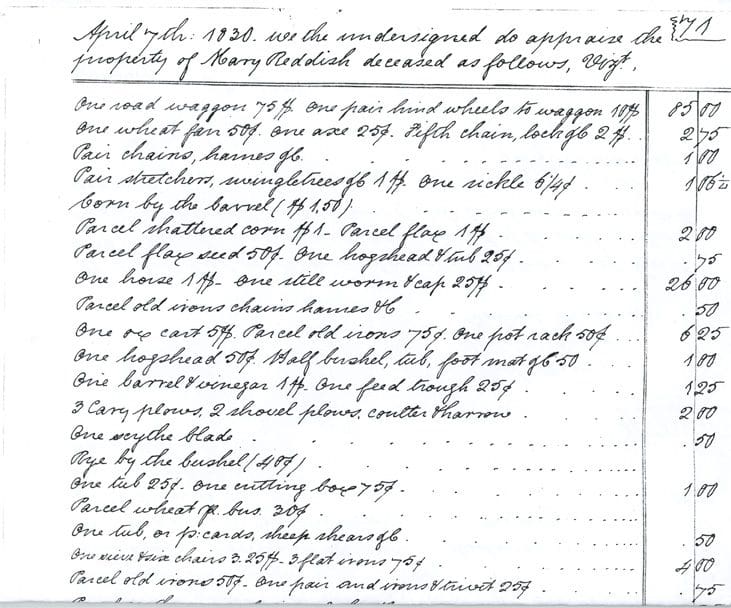 April 7th: 1830. we the undersigned do appraise the 71
property of Mary Reddish deceased as follows, Vizt.
One road waggon 75 $. One pair hind wheels to waggon 10 $ 85 00
One wheat fan 50¢. One axe 25¢. Fifth chain, lock &c 2 $. 2 75
Pair chains, hames &c. 1 00
Pair stretchers, swingletrees &c 1 $. One sickle 6 1/4¢ 1 06 1/4
Corn by the barrel ($ 1.50)
Parcel shattered corn $1 - Parcel flax 1 $. 2 00
Parcel flax seed 50¢. One hogshead & tub 25¢ .75
One horse 1 $. One still worm & cap 25 $. 26 00
Parcel old irons chains hames &c .50
One ox cart 5 $. Parcel old irons 75¢. One pot rack 50¢ 6 25
One hogshead 50¢. Half bushel, tub, foot mat &c 50 1 00
One barrel & vinegar 1 $. One feed trough 25¢. 1 25
3 Cary plows, 2 shovel plows, coulter & harrow 2 00
One scythe blade .50
Rye by the bushel (40¢)
One tub 25¢. One cutting box 75¢. 1 00
Parcel wheat p. bus. 30¢
One tub, or p: cards, sheep shears &c .50
One sieve & six chairs 3.25 $. 3 flat irons 75¢ 4 00
Parcel old irons 50¢. One pair and irons & trivet 25¢ .75